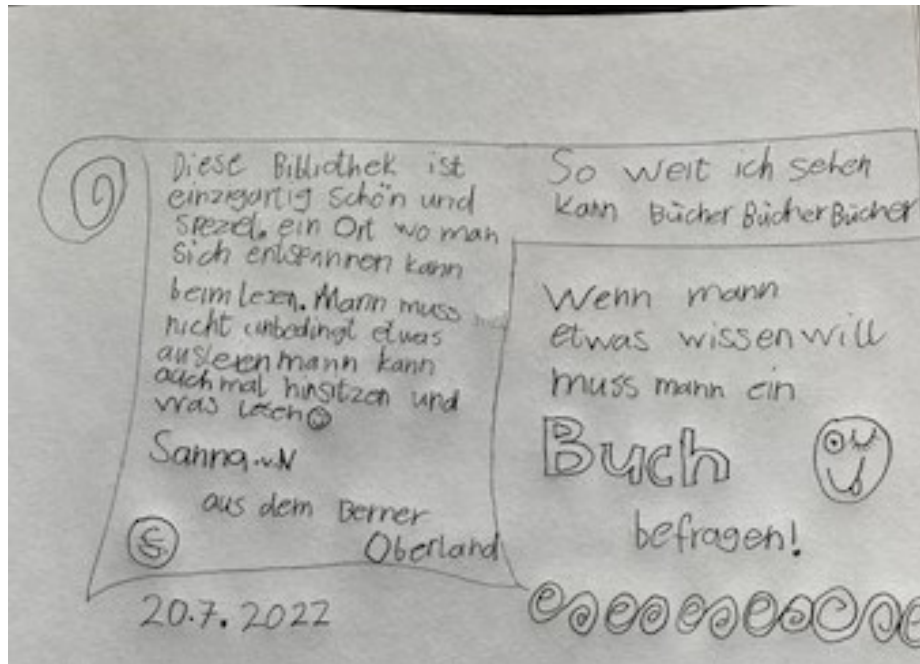 Diese Bibliothek ist
einziegartig schön und
speziel. ein Ort wo man
sich entspannen kann
beim lesen. Mann muss
nicht unbedingt etwas
ausleren mann kann
auch mal hinsitzen und
was lesen
Sanna.v.N
aus dem Berner
Oberland
S
20.7.2022
So weit ich sehen
kann Bücher Bücher Bücher
Wenn mann
etwas wissen will
muss mann ein
Buch
befragen!